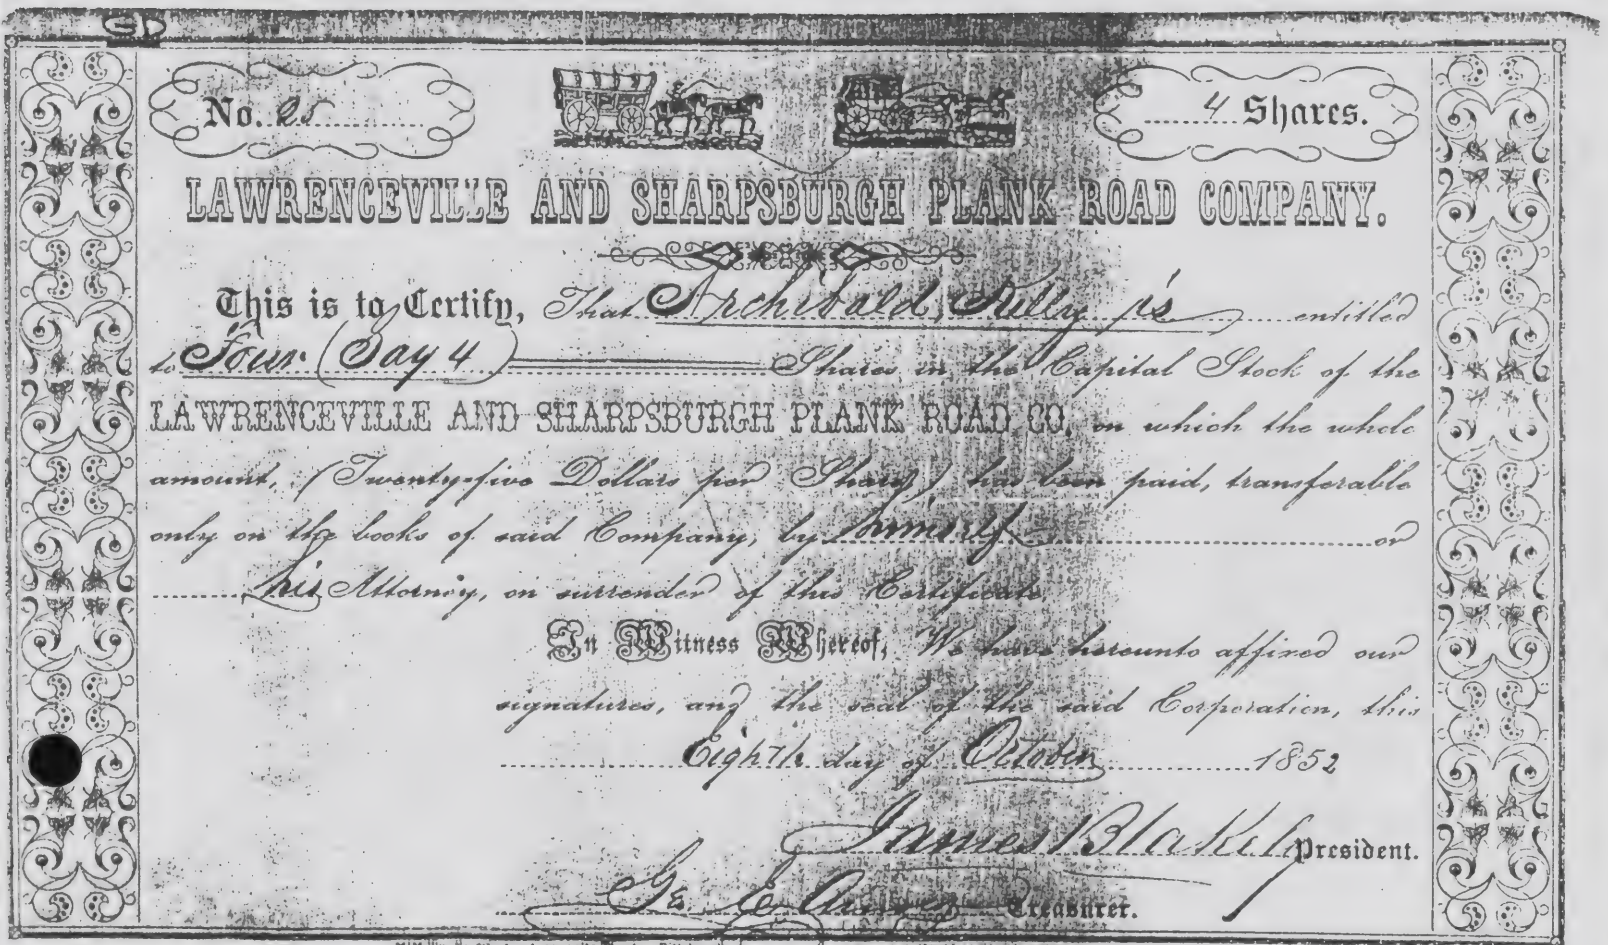 No. 25
4 Shares.
LAWRENCEVILLE AND SHARPSBURGH PLANK ROAD COMPANY.
This is to Certify, That Archibald, Kelly is entitled
to Four (Say 4) Shares in the Capital Stock of the
LAWRENCEVILLE AND SHARPSBURGH PLANK ROAD CO. on which the whole
amount, (Twenty-five Dollars per Share,) has been paid, transferable
only on the books of said Company, by himself or
his Attorney, on surrender of this Certificate
In Witness Whereof, We have hereunto affixed our
signatures, and the seal of the said Corporation, this
Eighth day of October 1852
James Blakely President.
Treasurer.